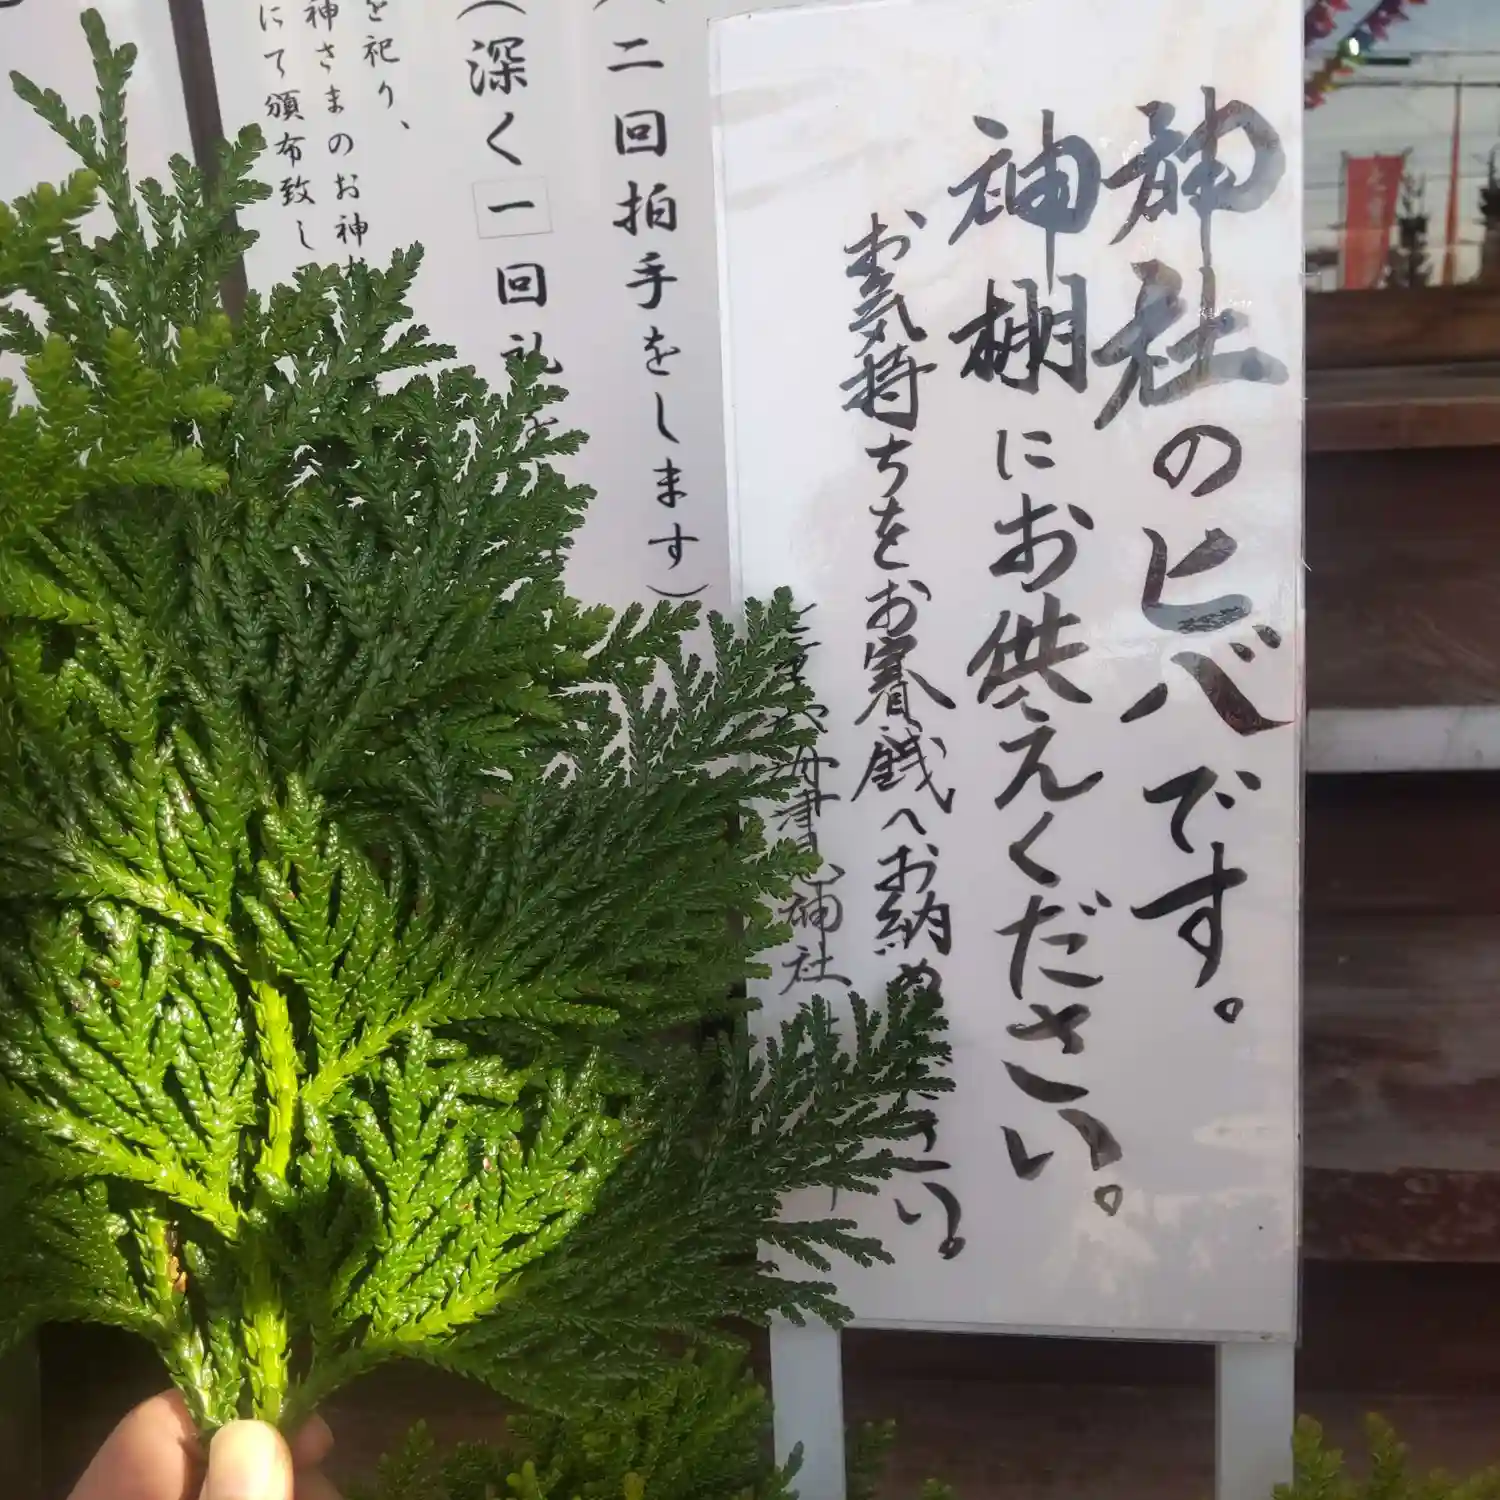 神社のヒバです。
神棚にお供えください。
お気持ちをお賽銭へお納めください。
神社
二回拍手をします）
（深く一回礼を
を祀り、
神さまのお神
にて頒布致し